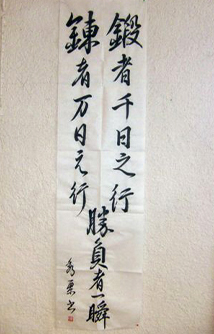 鍛者千日之行
錬者万日之行
勝負者一瞬